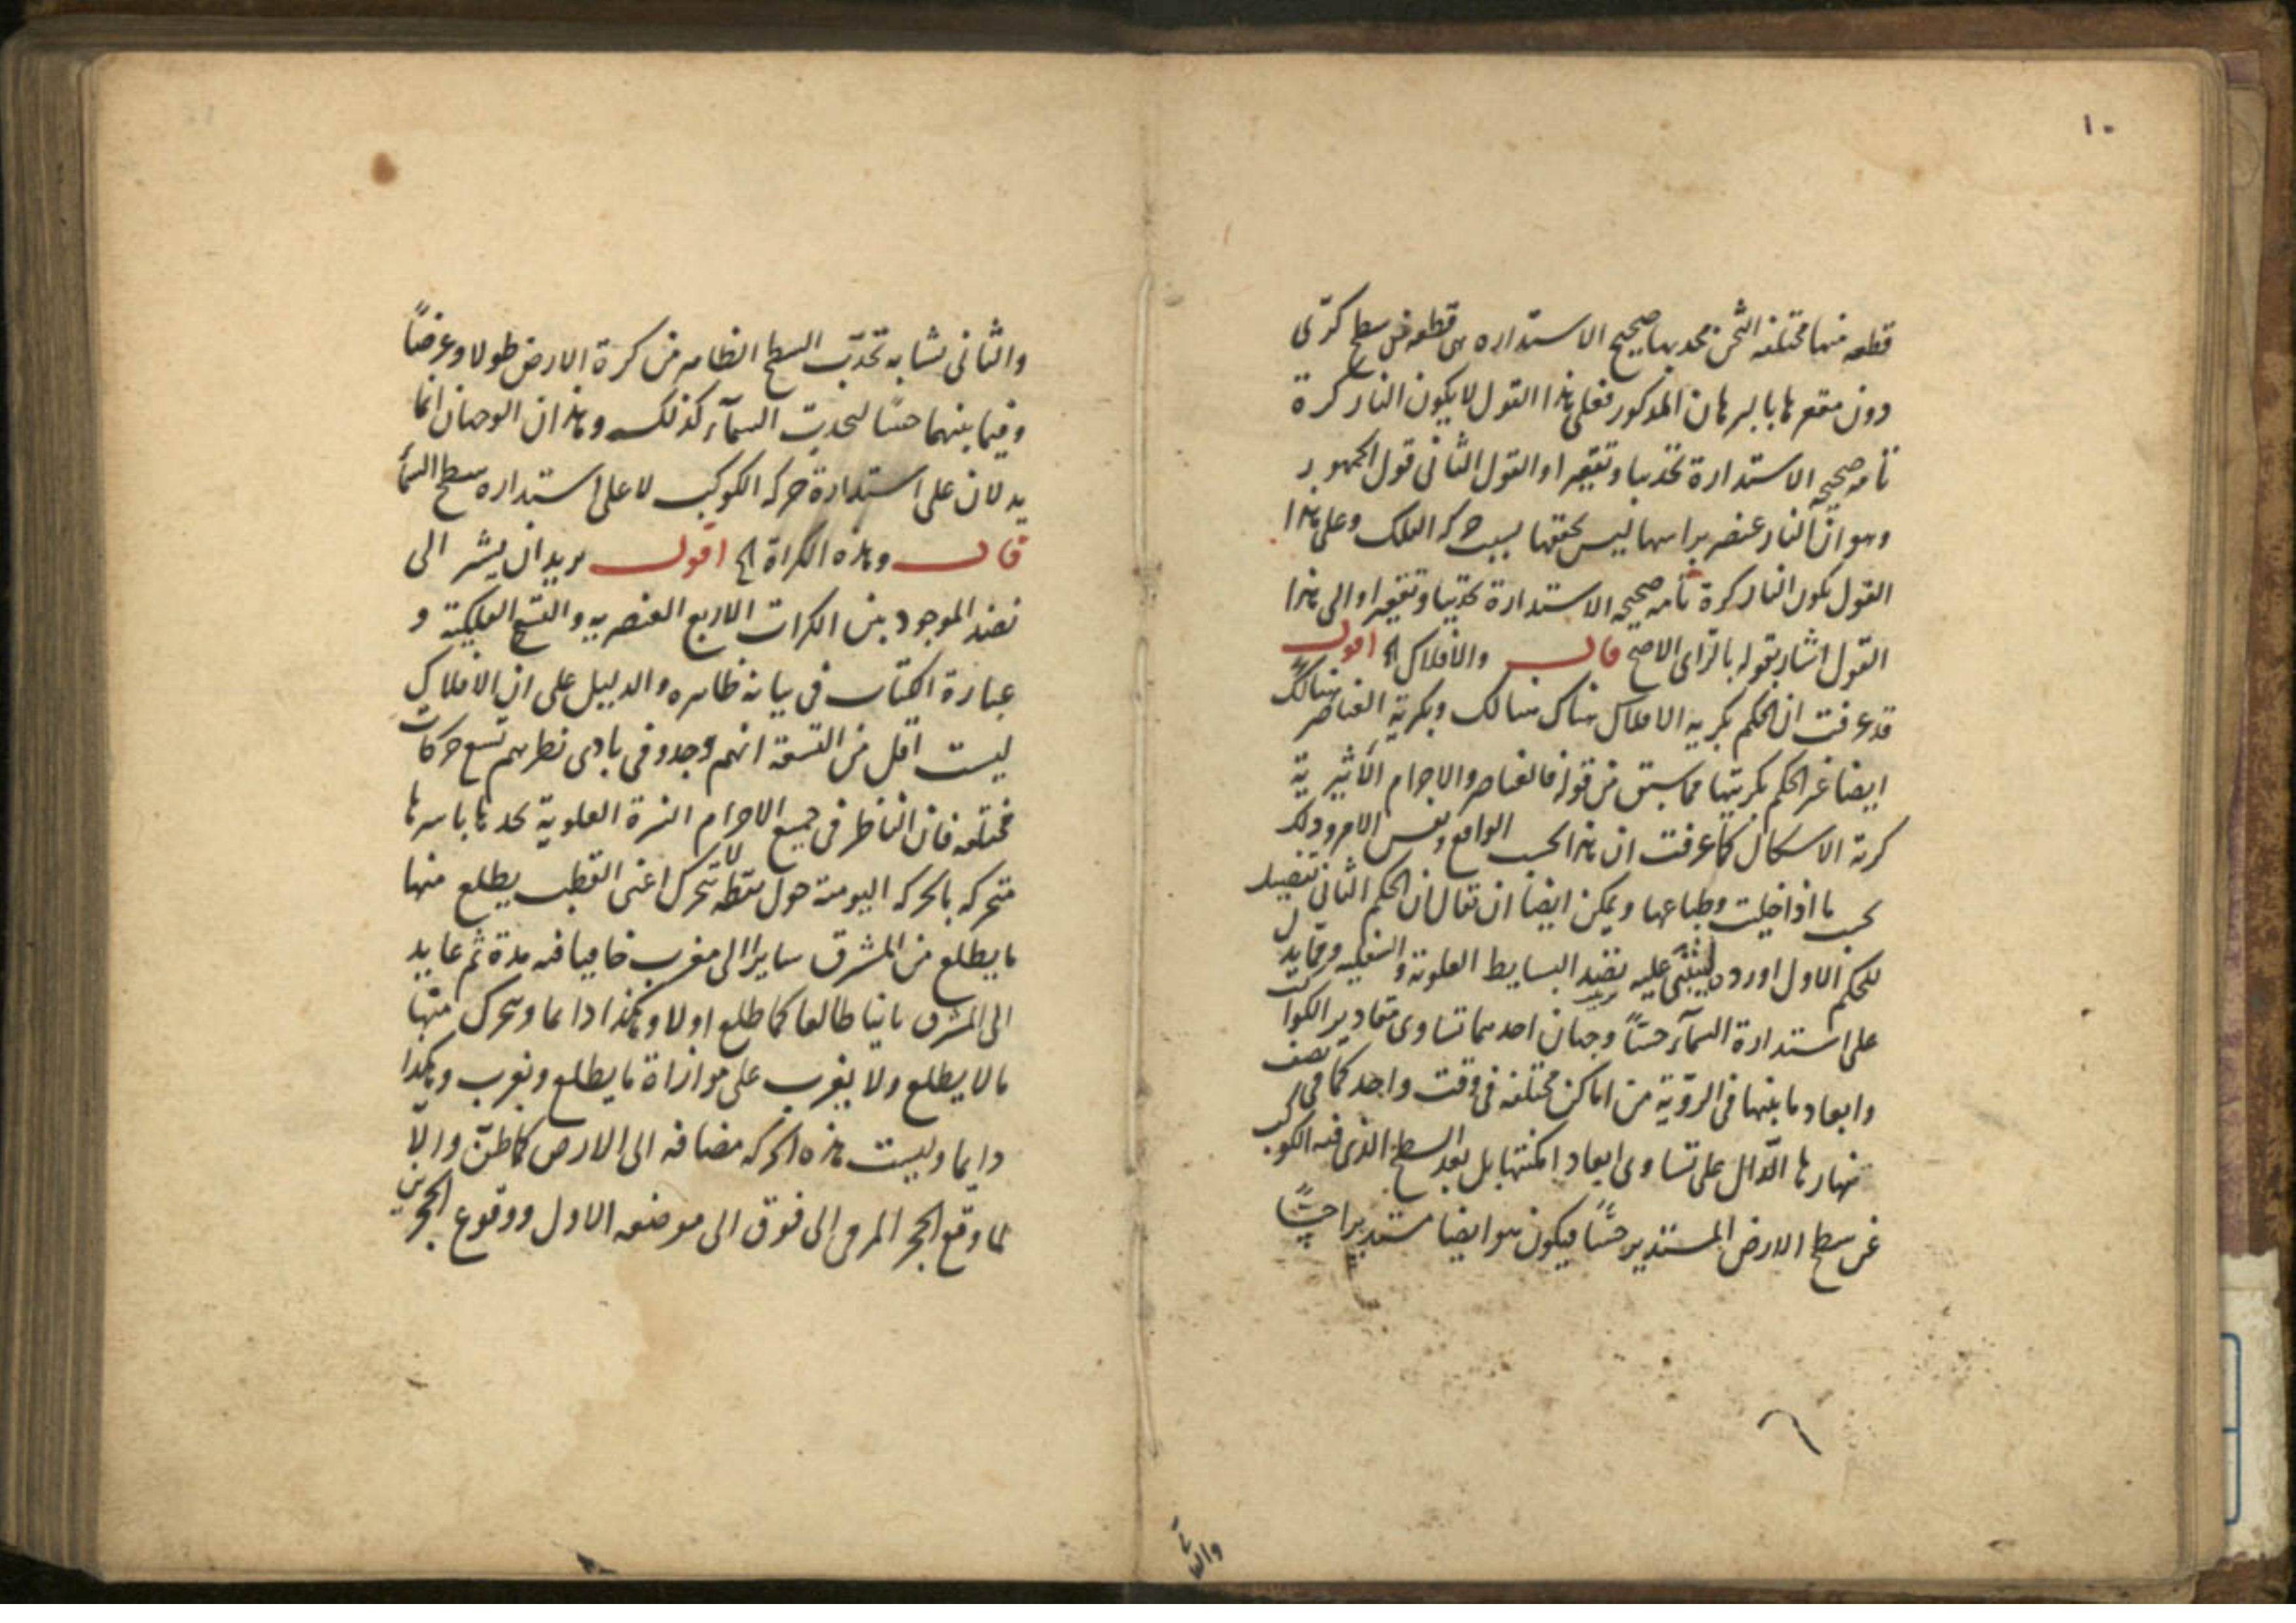 ١٠
قطعه منها مختلفه الثخن محدبها صحيح الاستداره هى قطعه من سطح كرّى
دون مقعرها بالبرهان المذكور فعلى هذا القول لا يكون النار كرة
تامه صحيحه الاستدارة تحديبا وتقعيرا والقول الثانى قول الجمهور
وهو انّ النار عنصر براسها ليس تحققها بسبب حركه الفلك وعلى هذا
القول يكون النار كرة تامه صحيحه الاستدارة تحديبا وتقعيرا والى هذا
القول اشار بقوله بالرّاى الاصح قال والأفلاك الخ اقول
قد عرفت ان الحكم بكريه الافلاك هناك هنالك وبكرية العناصر هنالك
ايضا غير الحكم بكريتها مما سبق من قوله فالعناصر والاجرام الأثيرية
كرية الاشكال كما عرفت ان هذا بحسب الواقع ونفس الامر وذلك
بحسب ما اذا خليت وطباعها ويمكن ايضا ان يقال ان الحكم الثانى تفصيل
للحكم الاول اورده ليبتنى عليه نضد البسايط العلوية والسفليه وممّا يدل
على استدارة السّمآء حسّاً وجهان احدهما تساوى مقادير الكواكب
وابعاد ما بينها فى الرّؤية من اماكن مختلفه فى وقت واحد كما فى نصف
نهارها الدّال على تساوى ابعاد امكنتها بل بعد السطح الذى فيه الكوكب
عن سطح الارض المستدير حسّاً فيكون هو ايضا مستديرا حسّاً
والثا
والثانى تشابه تحدّب السطح الظاهر من كرة الارض طولا وعرضاً
وفيما بينهما حسّا لتحدب السمآء كذلك وهذان الوجهان انّما
يدلان على استدارة حركه الكوكب لا على استداره سطح السّمآء
قال وهذه الكراة الخ اقول يريد ان يشير الى
نضد الموجود بين الكرات الاربع العنصريه والتسع الفلكية و
عبارة الكتاب فى بيانه ظاهره والدليل على ان الافلاك
ليست اقل من التسعة انهم وجدوا فى بادى نظرهم تسع حركات
مختلفه فان الناظر فى جميع الاجرام النيرة العلوية يجدها باسرها
متحركه بالحركه اليومية حول نقطه لا تتحرك اعنى القطب يطلع منها
ما يطلع من المشرق سايرا الى مغرب خافيا فيه مدة ثم عايد
الى المشرق ثانيا طالعا كما طلع اولا وهكذا دايما ويتحرك منها
ما لا يطلع ولا يغرب على موازاة ما يطلع ويغرب وهكذا
دايما وليست هذه الحركه مضافه الى الارض كما ظنّ والّا
لما وقع الحجر المرمى الى فوق الى موضعه الاول ووقوع الحجرين